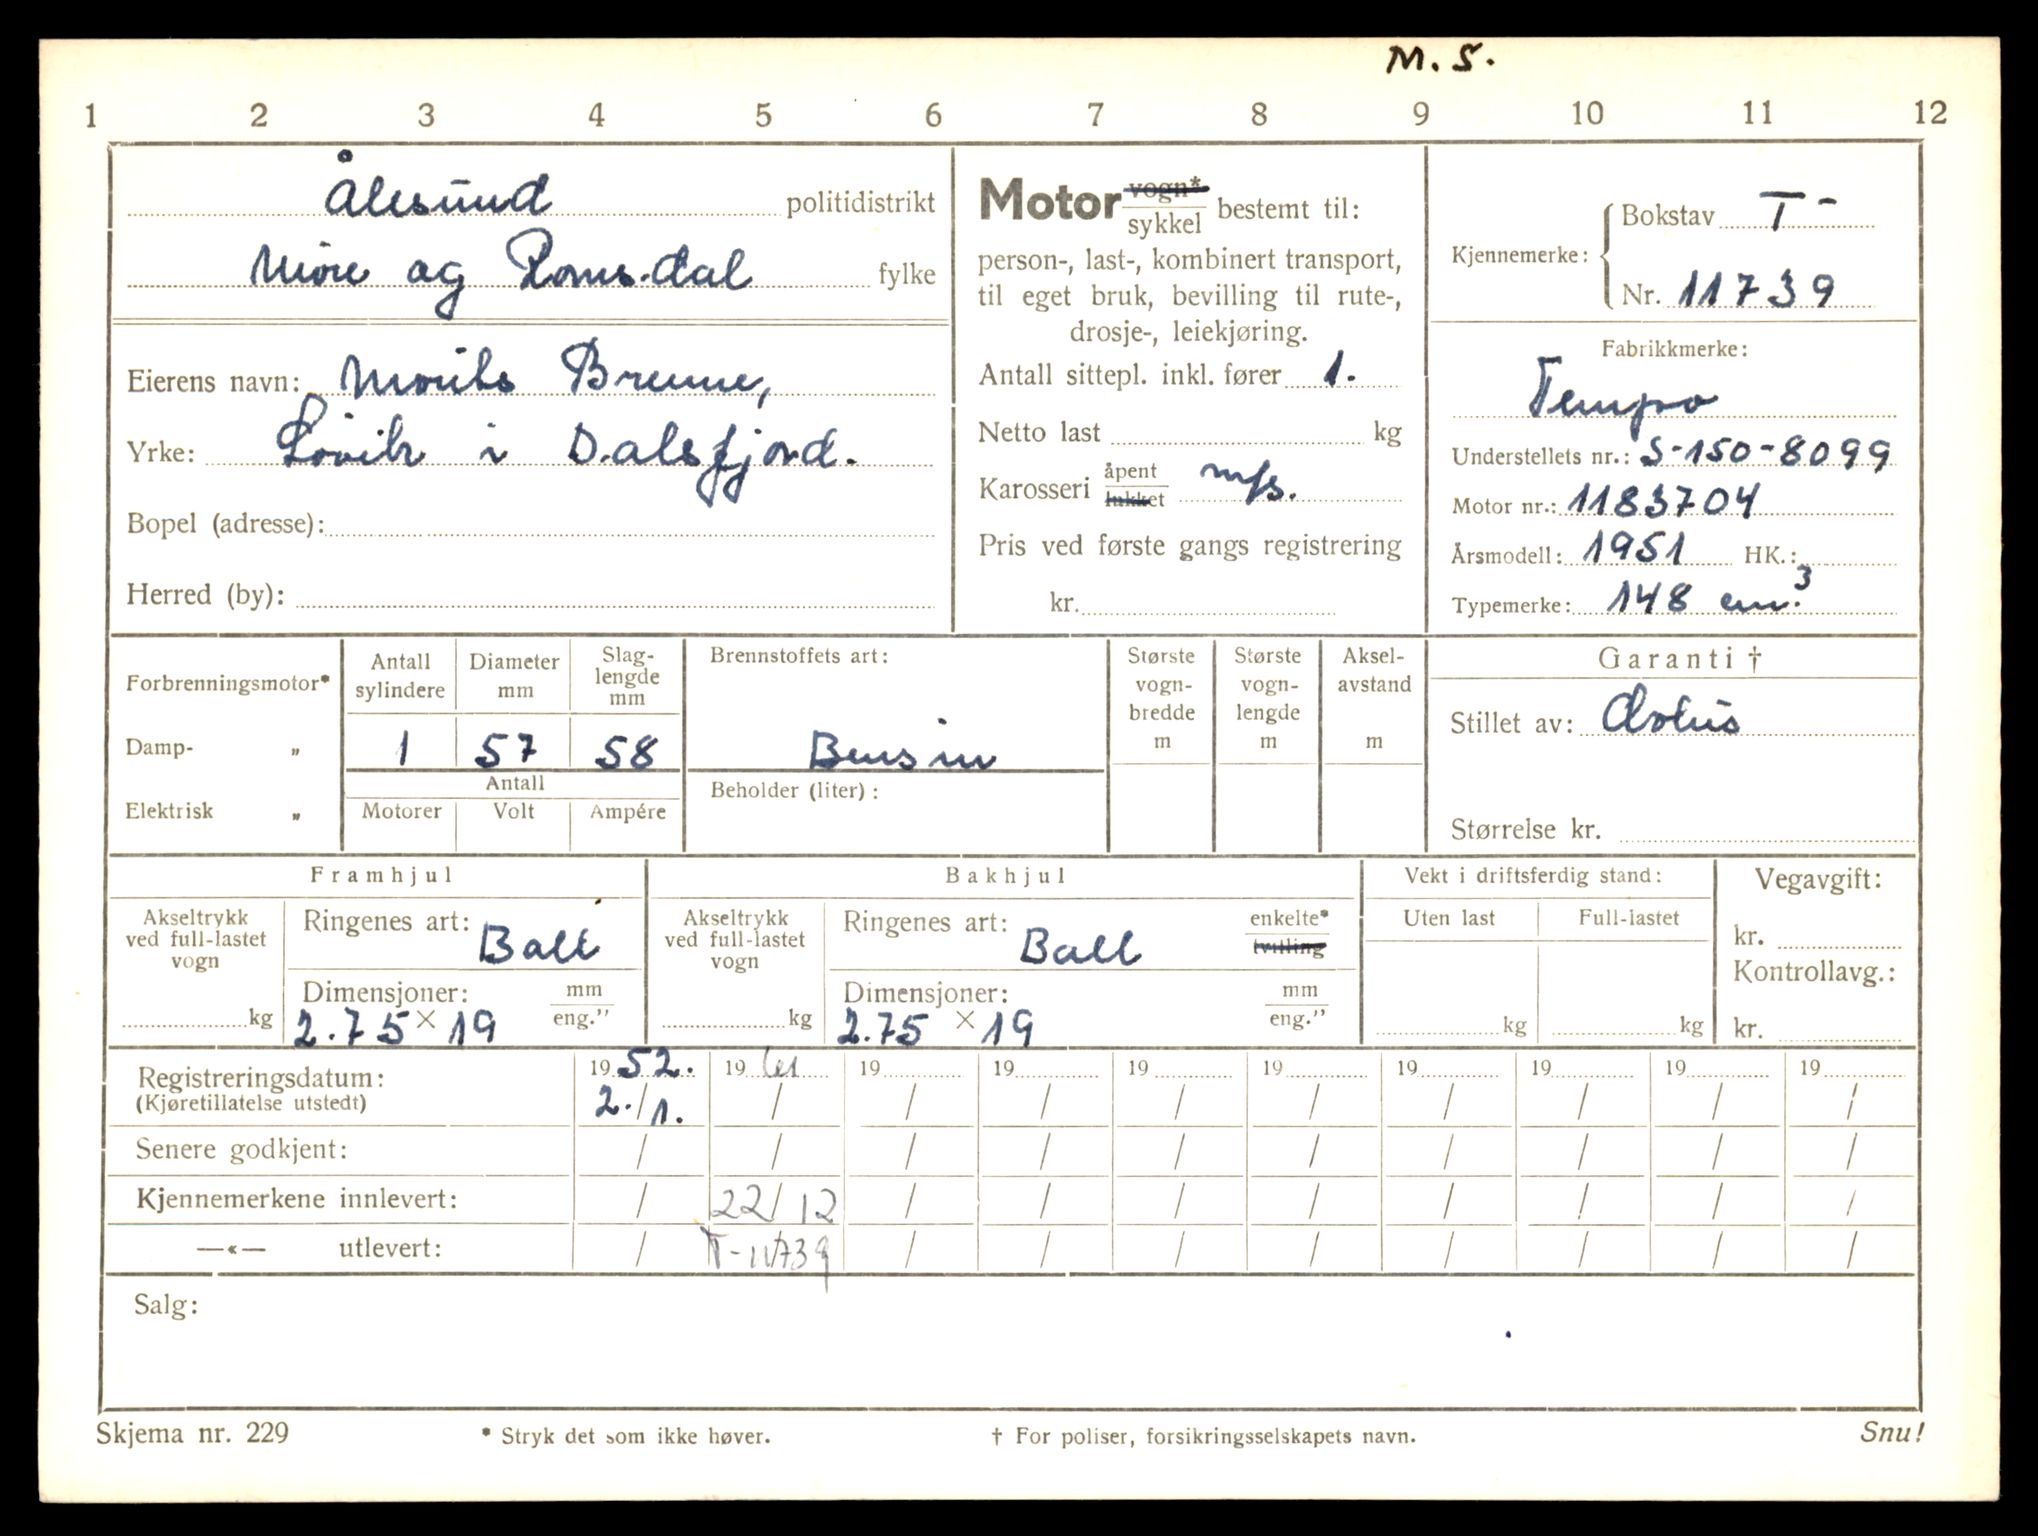 M. S.
1 2 3 4 5 6 7 8 9 10 11 12
Ålesund politidistrikt
Møre og Romsdal fylke
Eierens navn: Morits Brenne,
Yrke: Løvik i Dalsfjord.
Bopel (adresse):
Herred (by):
Motor vogn* / sykkel bestemt til:
person-, last-, kombinert transport,
til eget bruk, bevilling til rute-,
drosje-, leiekjøring.
Antall sittepl. inkl. fører 1.
Netto last kg
Karosseri åpent / lukket mfs.
Pris ved første gangs registrering
kr.
Kjennemerke: Bokstav T-
Nr. 11739
Fabrikkmerke:
Tempo
Understellets nr.: S-150-8099
Motor nr.: 1183704
Årsmodell: 1951 HK.:
Typemerke: 148 cm.3
Forbrenningsmotor*
Damp- „
Elektrisk „
Antall sylindere
1
Diameter mm
57
Slag-
lengde
mm
58
Antall
Motorer Volt Ampére
Brennstoffets art:
Bensin
Beholder (liter):
Største
vogn-
bredde
m
Største
vogn-
lengde
m
Aksel-
avstand
m
Garanti †
Stillet av:
Størrelse kr.
Framhjul
Akseltrykk
ved full-lastet
vogn
kg
Ringenes art: Ball
Dimensjoner: mm
2.75 × 19 eng.”
Bakhjul
Akseltrykk
ved full-lastet
vogn
kg
Ringenes art: Ball enkelte* / tvilling
Dimensjoner: mm
2.75 × 19 eng.”
Vekt i driftsferdig stand:
Uten last Full-lastet
kg kg
Vegavgift:
kr.
Kontrollavg.:
kr.
Registreringsdatum: 19 52. 19 61 19 19 19 19 19 19 19 19
(Kjøretillatelse utstedt) 2./1. / / / / / / / / /
Senere godkjent: / / / / / / / / / /
Kjennemerkene innlevert: / 22/12 / / / / / / / /
—«— utlevert: / T-11739 / / / / / / / /
Salg:
Skjema nr. 229 * Stryk det som ikke høver. † For poliser, forsikringsselskapets navn. Snu!